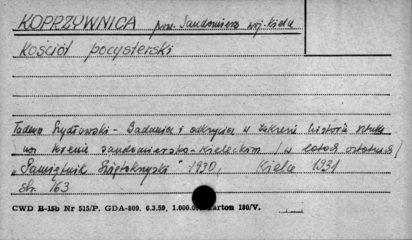 KOPRZYWNICA pow. Sandomierz woj. Kielce
Kościół pocysterski
Tadeusz Szydłowski - Badania i odkrycia w zakresie historii sztuki
na terenie sandomiersko-kieleckim /w latach ostatnich/
"Pamiętnik Świętokrzyski" 1930, Kielce 1931
str. 163
CWD B-15b Nr 515/P. GDA-809. 6.3.59. 1.000.0 karton 180/V.